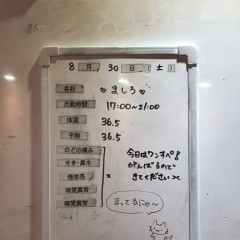 8 月 30 日 (土)
名前 ♡ ましろ ♡
出勤時間 17:00~21:00
体温 36.5
平熱 36.5
のどの痛み
せき・鼻水
倦怠感 ×
味覚異常
今日はワンオペ!
がんばるので
きてください
まってるにゃ~